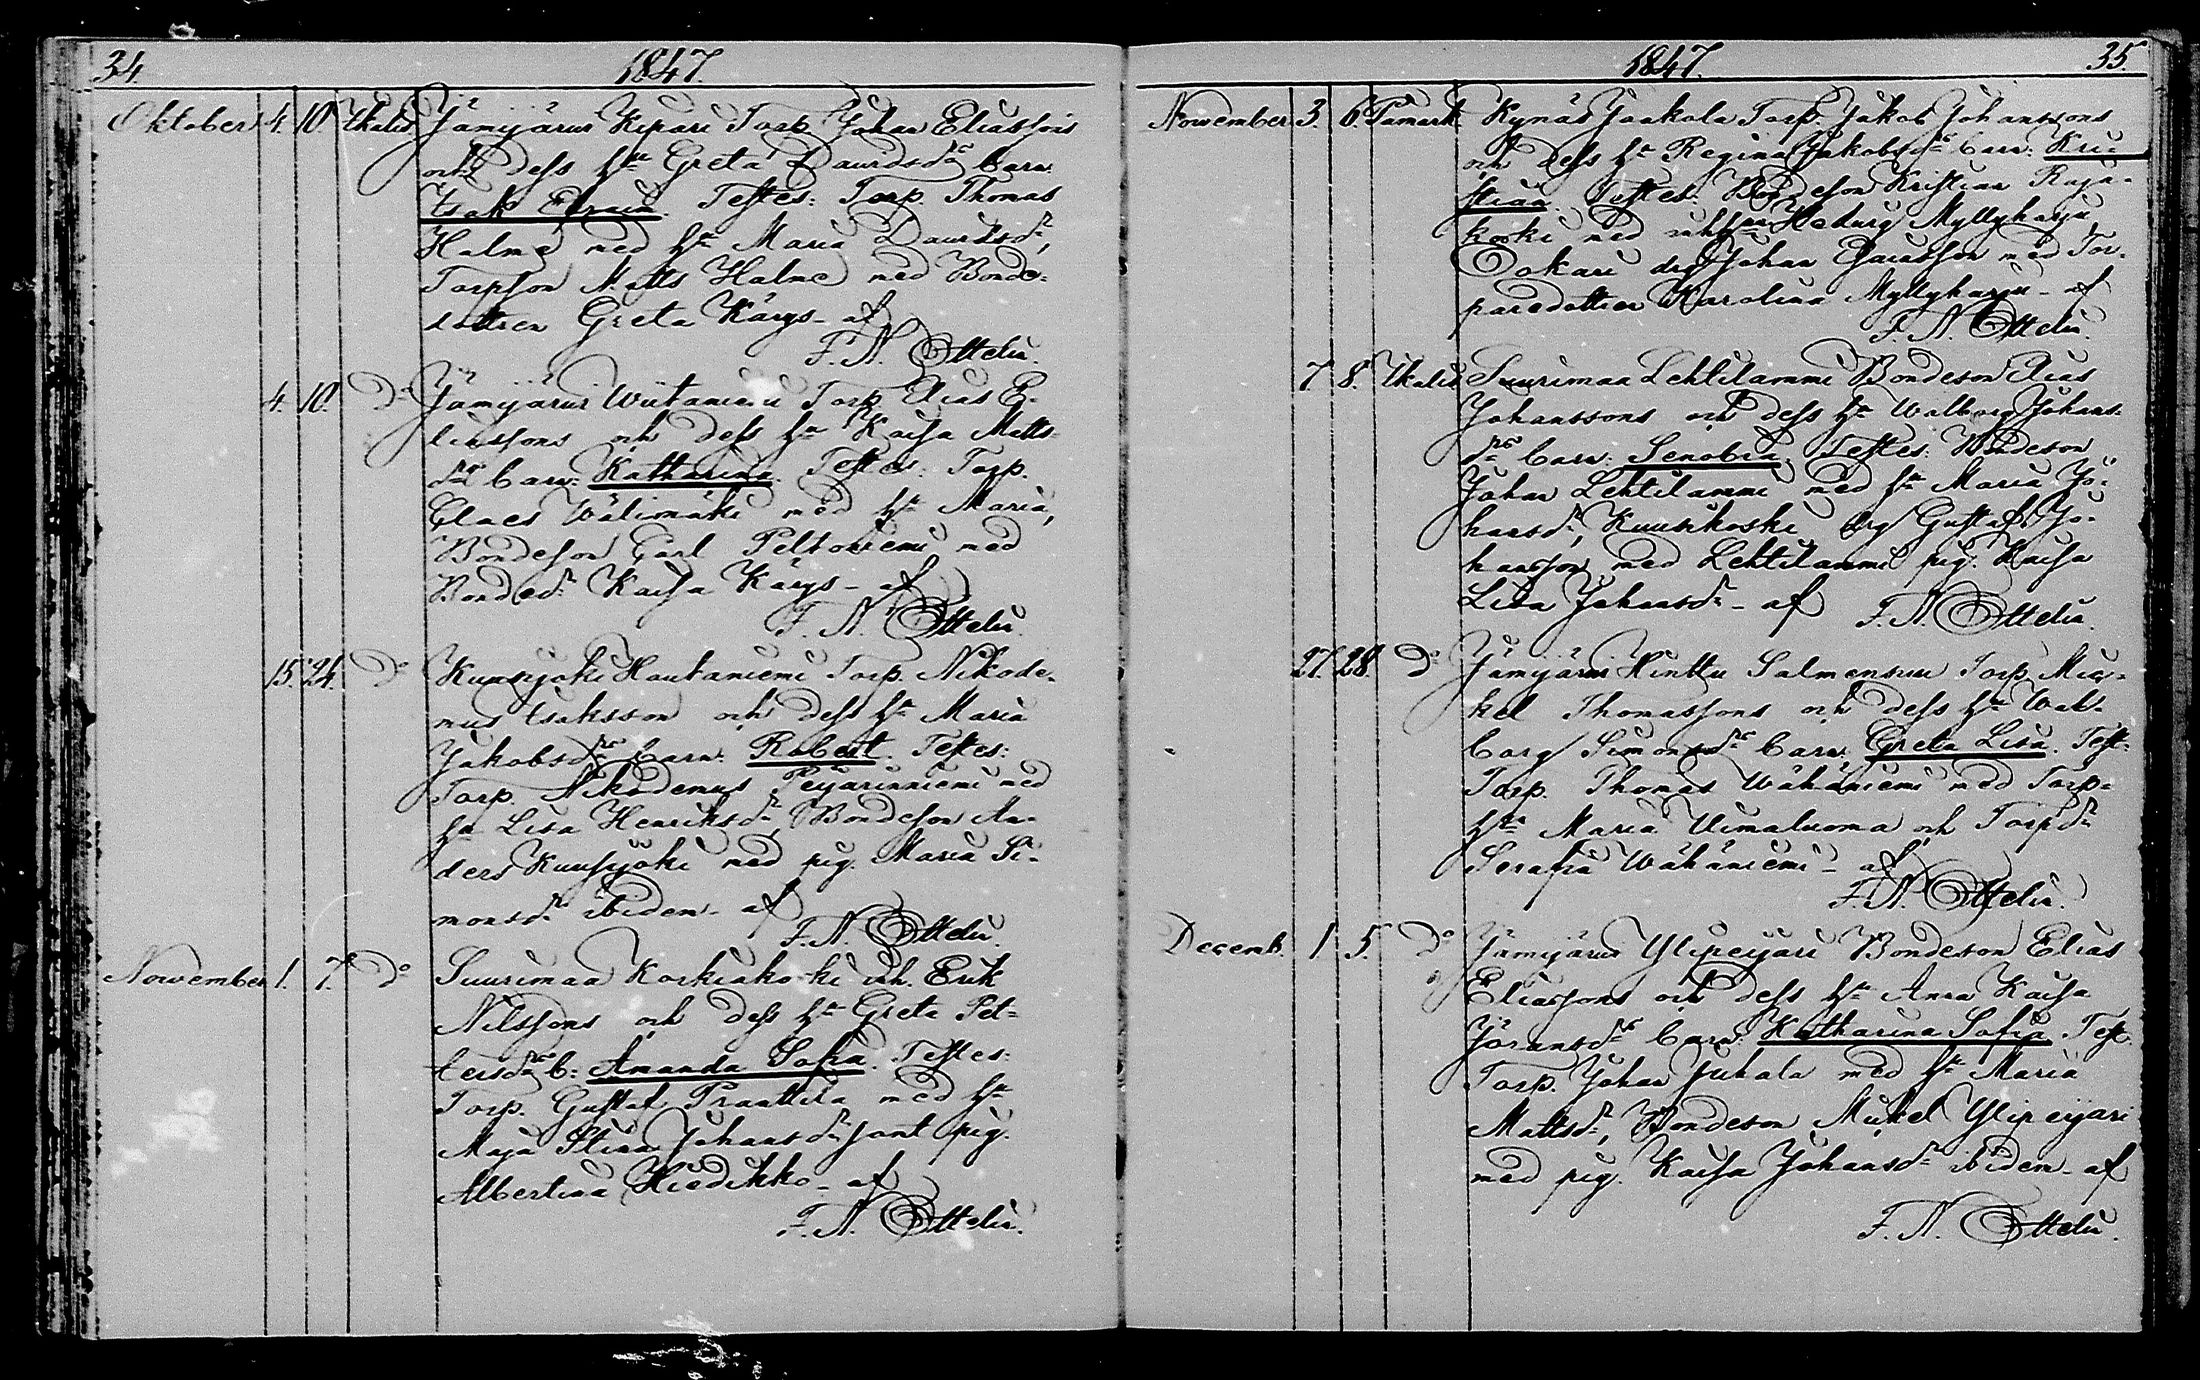 34. 1847.
Oktober 4. 10 Ikalis Jämijärvi Kipari Torp. Johan Eliassons
och dess h:u Greta Davidsd:rs barn:
Isak Efraim. Testes: Torp. Thomas
Halme med h:u Maria Davidsd:r,
Torpson Matts Halme med Bonde-
dottren Greta Kärys - af
F. N. Ottelin.
4. 10. D:o Jämijärvi Wiitaniemi Torp. Elias E-
liassons och dess h:u Kaisa Matts-
d:rs barn: Katharina. Testes: Torp.
Claes Wälimäki med h:u Maria,
Bondeson Carl Peltoniemi med
Bonded:r Kaisa Kärys - af
F. N. Ottelin.
15. 24. D:o Kuusjoki Hautaniemi Torp. Nikode-
mus Isaksson och dess h:u Maria
Jakobsd:rs barn: Robert. Testes:
Torp. Nikodemus Peijarinniemi med
h:u Lisa Henriksd:r, Bondeson An-
ders Kuusjoki med pig. Maria Si-
monsd:r ibidem - af
F. N. Ottelin.
November 1. 7. D:o Suurimaa Korkiakoski inh. Erik
Nilssons och dess h:u Greta Pet-
tersd:rs b: Amanda Sofia. Testes:
Torp. Gustaf Pranttila med h:u
Maja Stina Johansd:r samt pig.
Albertina Hiedikko - af
F. N. Ottelin.
1847. 35.
November 3. 6. Tamark. Kynäs Jaakola Torp. Jakob Johanssons
och dess h:u Regina Jakobsd:rs barn: Kri-
stian. Testes: Bondeson Kristian Raja-
koski med inh:s Hedvig Myllyharju
Ookari drg Johan Esaiasson med Tor-
paredotter Karolina Myllyharju - af
F. N. Ottelin.
7. 8. Ikalis Suurimaa Lehtilammi Bondeson Elias
Johanssons och dess h:u Walborg Johans-
d:rs barn: Senobia. Testes: Bondeson
Johan Lehtilammi med h:u Maria Jo-
hansd:r, Kuusikoski drg Gustaf Jo-
hansson med Lehtilammi pig. Kaisa
Lisa Johansd:r - af F. N. Ottelin.
27. 28. D:o Jämijärvi Hinttu Salmensuu Torp. Mic-
kel Thomassons och dess h:u Wal-
borg Simonsd:rs barn: Greta Lisa. Test:
Torp. Thomas Wähäniemi med Torp-
h:un Maria Uimaluoma och Torpd:r
Serafia Wähäniemi - af
F. N. Ottelin.
Decemb. 1. 5. D:o Jämijärvi Ylipeijari Bondeson Elias
Eliassons och dess h:u Anna Kaisa
Jöransd:rs barn: Katharina Sofia. Test.
Torp. Johan Juhala med h:u Maria
Mattsd:r, Bondeson Mickel Ylipeijari
med pig. Kaisa Johansd:r ibidem - af
F. N. Ottelin.